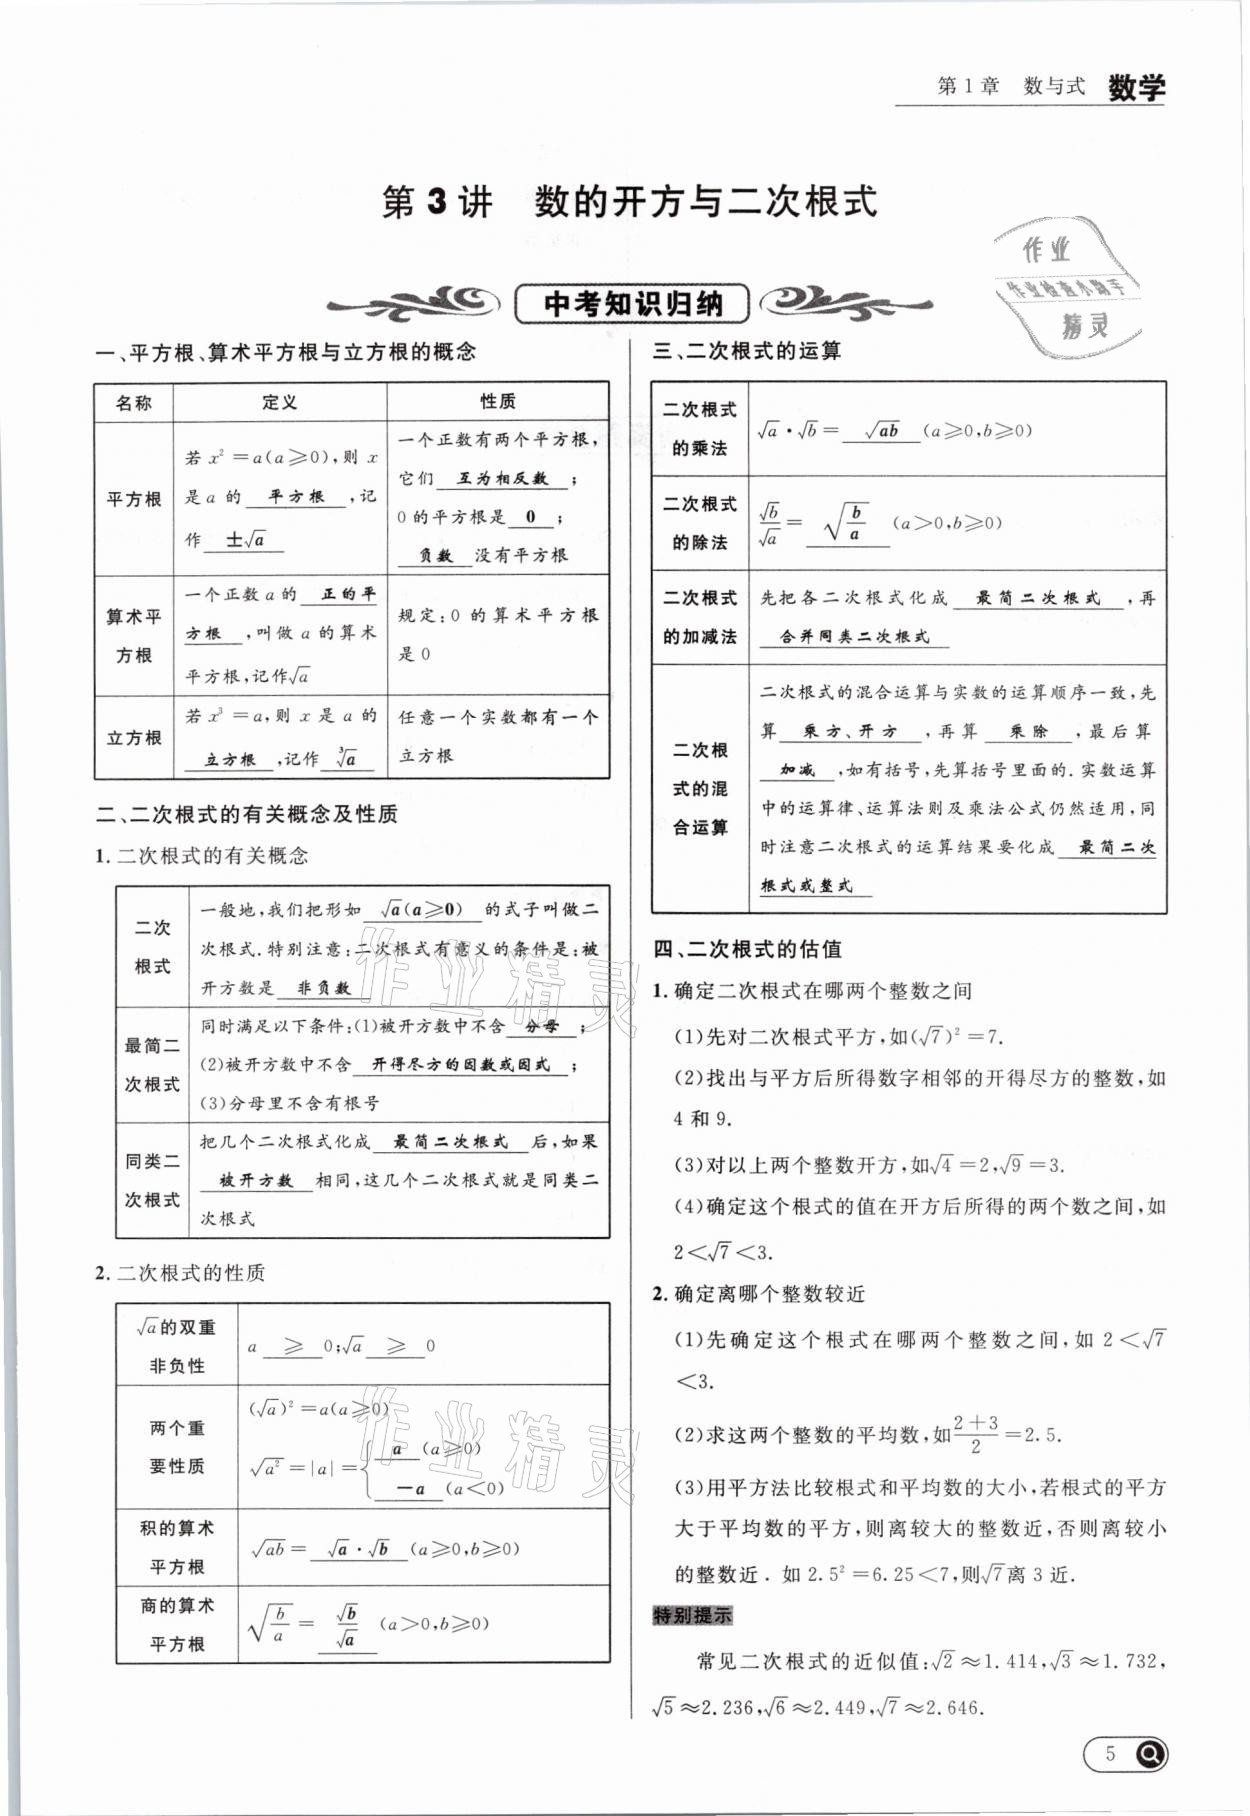 第1章 数与式 数学
第3讲 数的开方与二次根式
作业
作业检查小助手
精灵
中考知识归纳
一、平方根、算术平方根与立方根的概念
名称 定义 性质
平方根
若 x²=a(a≥0),则 x
是 a 的 平方根 ,记
作 ±√a
一个正数有两个平方根,
它们 互为相反数 ;
0的平方根是 0 ;
负数 没有平方根
算术平
方根
一个正数 a 的 正的平
方根 ,叫做 a 的算术
平方根,记作√a
规定:0 的算术平方根
是 0
立方根
若 x³=a,则 x 是 a 的
立方根 ,记作 ³√a
任意一个实数都有一个
立方根
二、二次根式的有关概念及性质
1. 二次根式的有关概念
二次
根式
一般地,我们把形如 √a(a≥0) 的式子叫做二
次根式.特别注意:二次根式有意义的条件是:被
开方数是 非负数
最简二
次根式
同时满足以下条件:(1)被开方数中不含 分母 ;
(2)被开方数中不含 开得尽方的因数或因式 ;
(3)分母里不含有根号
同类二
次根式
把几个二次根式化成 最简二次根式 后,如果
被开方数 相同,这几个二次根式就是同类二
次根式
2. 二次根式的性质
√a的双重
非负性
a ≥ 0;√a ≥ 0
两个重
要性质
(√a)²=a(a≥0)
√a²=|a|={ a (a≥0)
−a (a<0)
积的算术
平方根
√ab= √a·√b (a≥0,b≥0)
商的算术
平方根
√(b/a)= √b/√a (a>0,b≥0)
三、二次根式的运算
二次根式
的乘法
√a·√b= √ab (a≥0,b≥0)
二次根式
的除法
√b/√a= √(b/a) (a>0,b≥0)
二次根式
的加减法
先把各二次根式化成 最简二次根式 ,再
合并同类二次根式
二次根
式的混
合运算
二次根式的混合运算与实数的运算顺序一致,先
算 乘方、开方 ,再算 乘除 ,最后算
加减 ,如有括号,先算括号里面的.实数运算
中的运算律、运算法则及乘法公式仍然适用,同
时注意二次根式的运算结果要化成 最简二次
根式或整式
四、二次根式的估值
1. 确定二次根式在哪两个整数之间
(1)先对二次根式平方,如(√7)²=7.
(2)找出与平方后所得数字相邻的开得尽方的整数,如
4 和 9.
(3)对以上两个整数开方,如√4=2,√9=3.
(4)确定这个根式的值在开方后所得的两个数之间,如
2<√7<3.
2. 确定离哪个整数较近
(1)先确定这个根式在哪两个整数之间,如 2<√7
<3.
(2)求这两个整数的平均数,如(2+3)/2=2.5.
(3)用平方法比较根式和平均数的大小,若根式的平方
大于平均数的平方,则离较大的整数近,否则离较小
的整数近. 如 2.5²=6.25<7,则√7离 3 近.
特别提示
常见二次根式的近似值:√2≈1.414,√3≈1.732,
√5≈2.236,√6≈2.449,√7≈2.646.
作业精灵
作业精灵
5